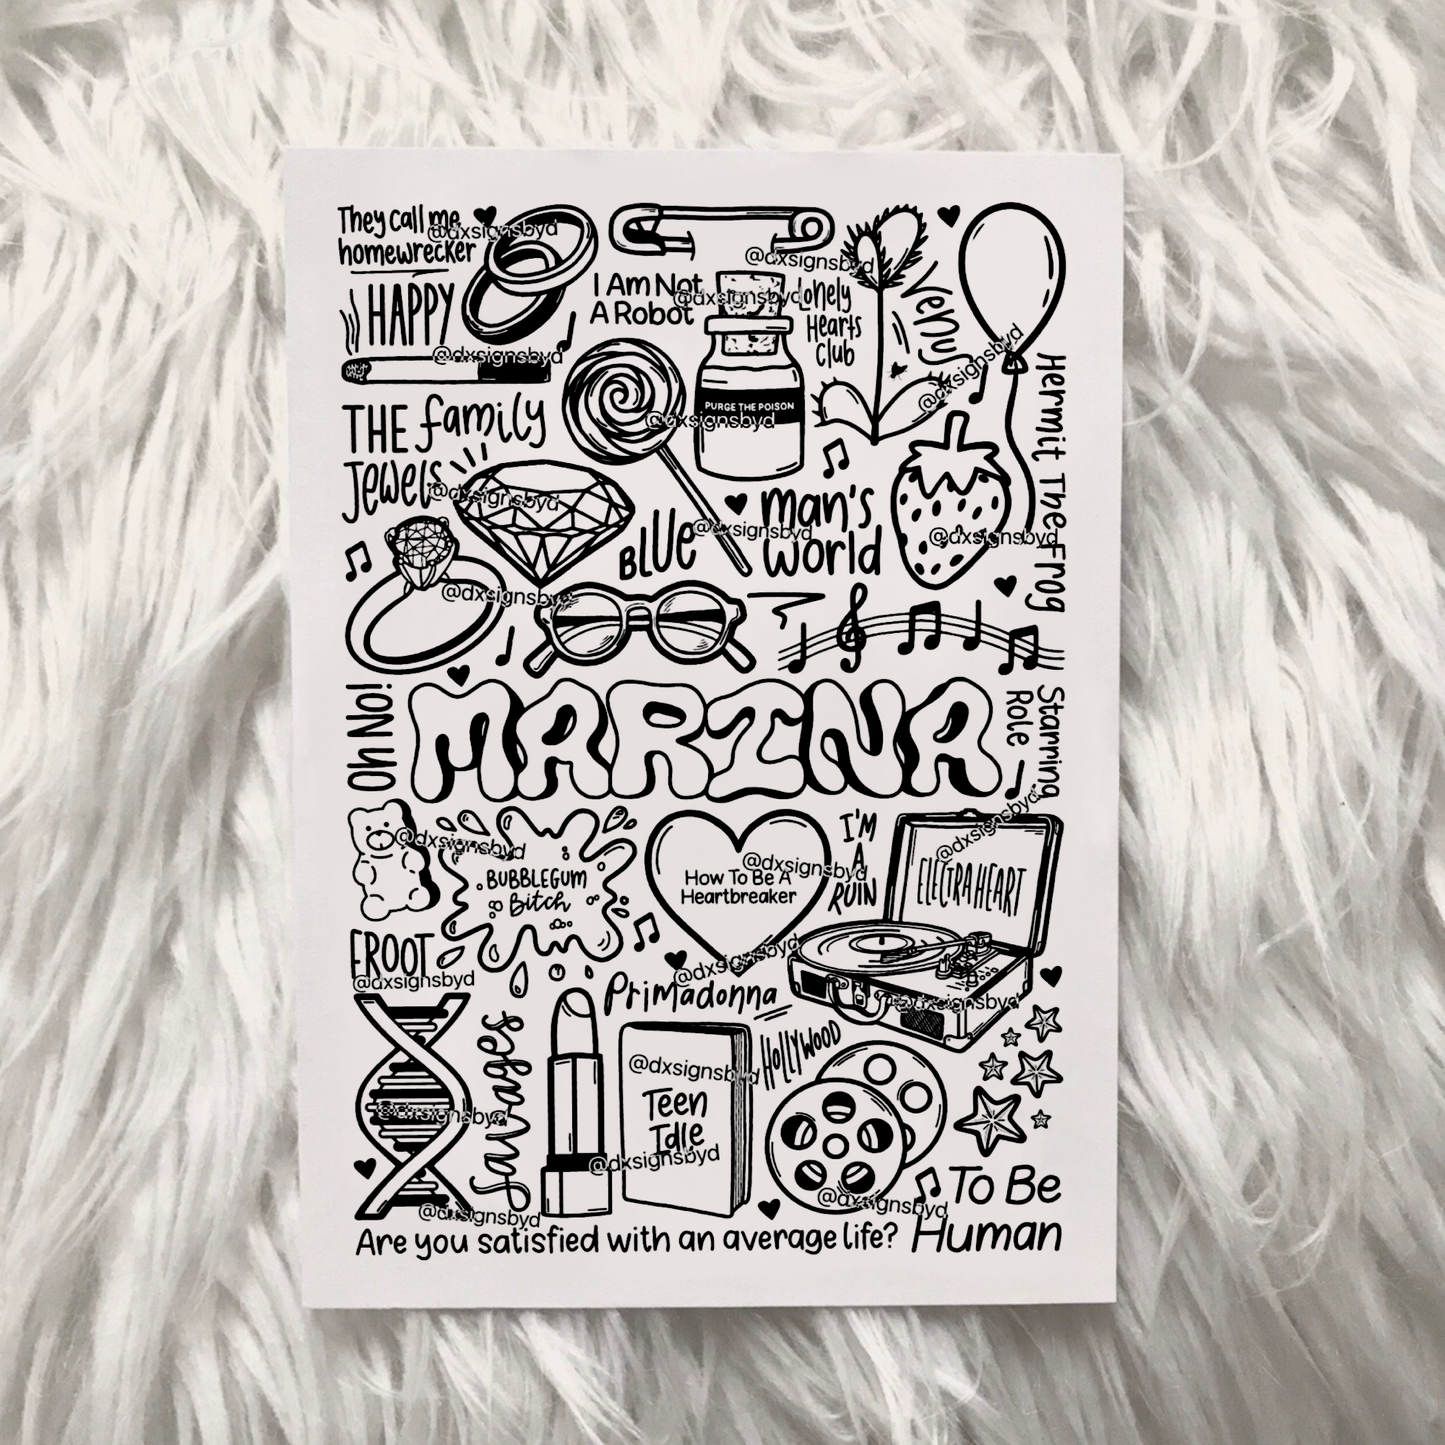 They call me
homewrecker
@dxsignsbyd
HAPPY
@dxsignsbyd
I Am Not
A Robot
@dxsignsbyd
@dxsignsbyd
Lonely
Hearts
Club
Venus
@dxsignsbyd
Hermit The Frog
THE family
Jewels
@dxsignsbyd
PURGE THE POISON
@dxsignsbyd
BLUE
@dxsignsbyd
man's
world
@dxsignsbyd
@dxsignsbyd
Oh No!
MARINA
Starring
Role
@dxsignsbyd
@dxsignsbyd
BUBBLEGUM
Bitch
How To Be A
Heartbreaker
@dxsignsbyd
I'M
A
RUIN
ELECTRA HEART
FROOT
@dxsignsbyd
Primadonna
@dxsignsbyd
@dxsignsbyd
Savages
@dxsignsbyd
@dxsignsbyd
Teen
Idle
@dxsignsbyd
HOLLYWOOD
@dxsignsbyd
@dxsignsbyd
To Be
Human
Are you satisfied with an average life?